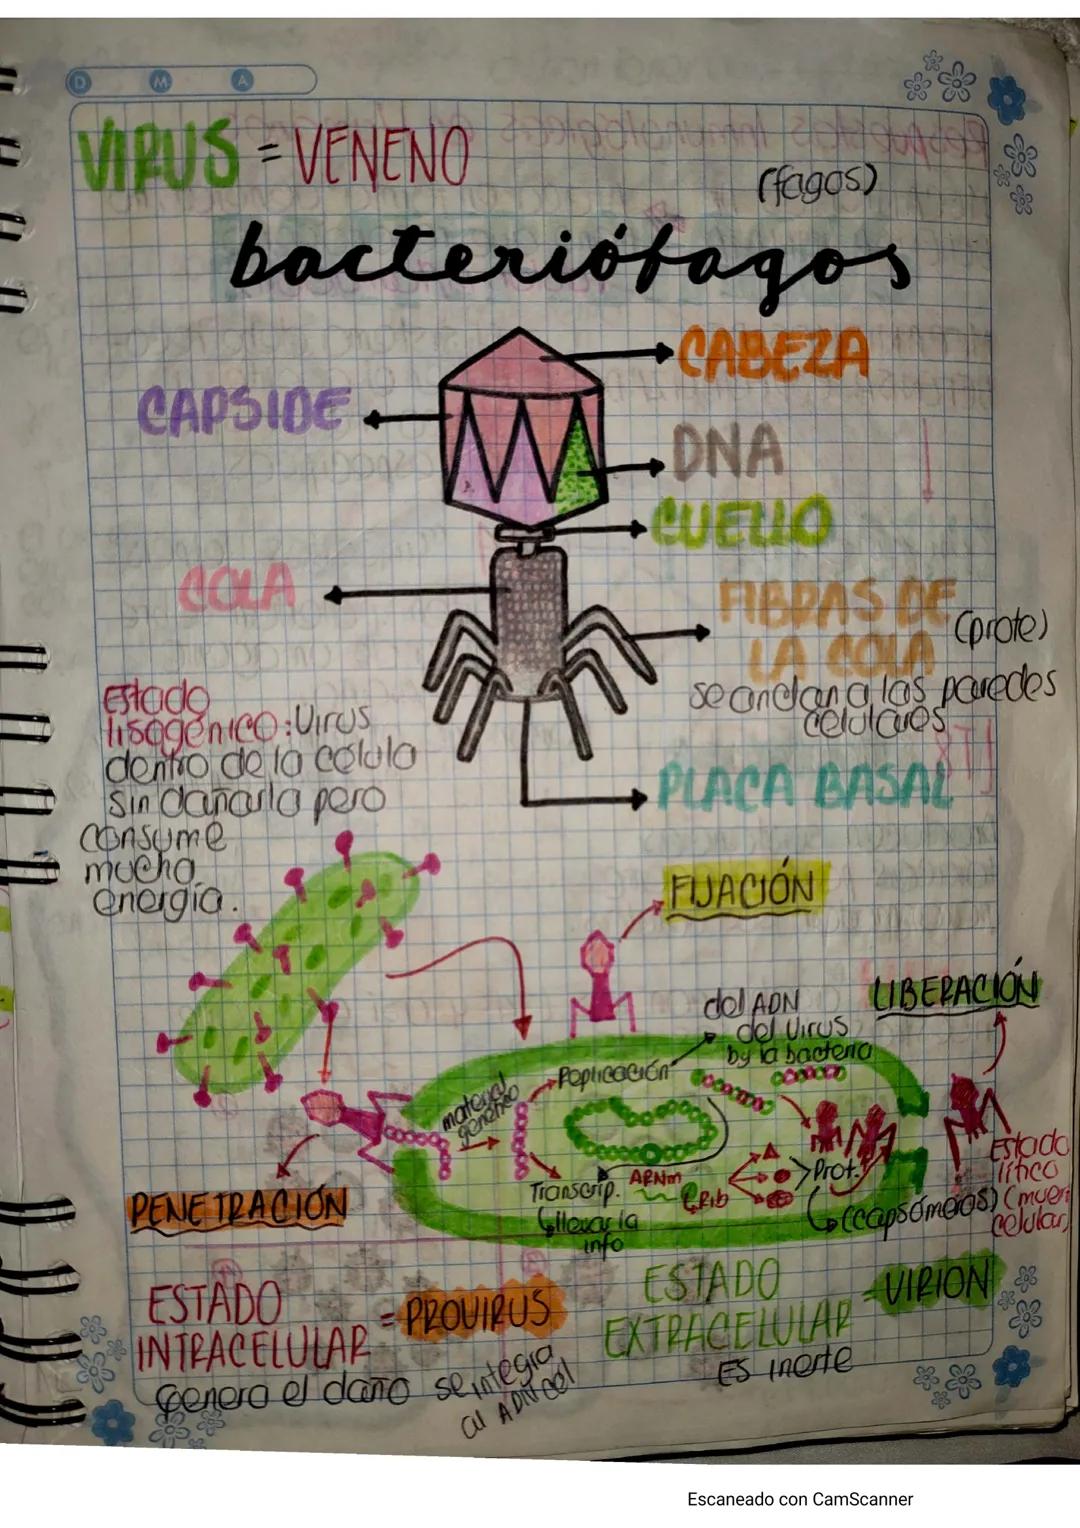 D M A
VIRUS = VENENO
(fagos)
bacteriófagos
CABEZA
CAPSIDE
DNA
CUELLO
COLA
FIBRAS DE
LA COLA
(prote)
se anclan a las paredes
celulares
PLACA BASAL
Estado
lisogénico: Virus
dentro de la célula
sin dañarla pero
consume
mucha
energía.
FIJACIÓN
LIBERACIÓN
del ADN
del virus
by la bacteria
Replicación
material
genético
PENETRACIÓN
Transcrip.
llevar la
info
ARNm
Rib
Prot.
(capsómeros)
Estado
lítico
(muerte
celular)
ESTADO
INTRACELULAR = PROVIRUS
Genera el daño se integra
al ADN cel
ESTADO
EXTRACELULAR = VIRION
Es inerte
Escaneado con CamScanner